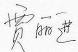 贾丽进